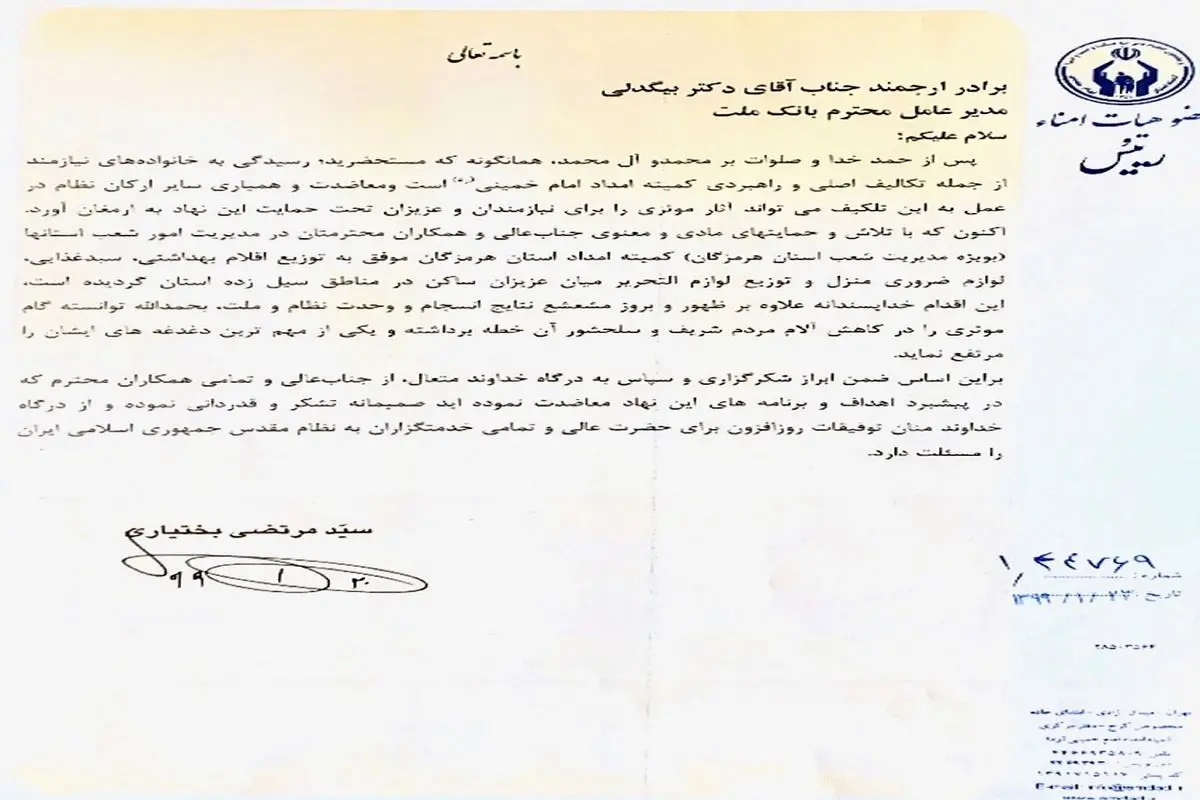 باسمه تعالی
برادر ارجمند جناب آقای دکتر بیگدلی
مدیر عامل محترم بانک ملت
سلام علیکم؛
پس از حمد خدا و صلوات بر محمدو آل محمد، همانگونه که مستحضرید؛ رسیدگی به خانواده‌های نیازمند
از جمله تکالیف اصلی و راهبردی کمیته امداد امام خمینی(ره) است ومعاضدت و همیاری سایر ارکان نظام در
عمل به این تلکیف می تواند آثار موثری را برای نیازمندان و عزیزان تحت حمایت این نهاد به ارمغان آورد.
اکنون که با تلاش و حمایتهای مادی و معنوی جناب‌عالی و همکاران محترمتان در مدیریت امور شعب استانها
(بویژه مدیریت شعب استان هرمزگان) کمیته امداد استان هرمزگان موفق به توزیع اقلام بهداشتی، سبدغذایی،
لوازم ضروری منزل و توزیع لوازم التحریر میان عزیزان ساکن در مناطق سیل زده استان گردیده است.
این اقدام خداپسندانه علاوه بر ظهور و بروز مشعشع نتایج انسجام و وحدت نظام و ملت، بحمدالله توانسته گام
موثری را در کاهش آلام مردم شریف و سلحشور آن خطه برداشته و یکی از مهم ترین دغدغه های ایشان را
مرتفع نماید.
براین اساس ضمن ابراز شکرگزاری و سپاس به درگاه خداوند متعال، از جناب‌عالی و تمامی همکاران محترم که
در پیشبرد اهداف و برنامه های این نهاد معاضدت نموده اید صمیمانه تشکر و قدردانی نموده و از درگاه
خداوند منان توفیقات روزافزون برای حضرت عالی و تمامی خدمتگزاران به نظام مقدس جمهوری اسلامی ایران
را مسئلت دارد.
سیّد مرتضی بختیاری
۹۹ ۱ ۲۰
عضو هیات امناء
رئیس
شماره:
تاریخ: ۱۳۹۹/۱/۲۳